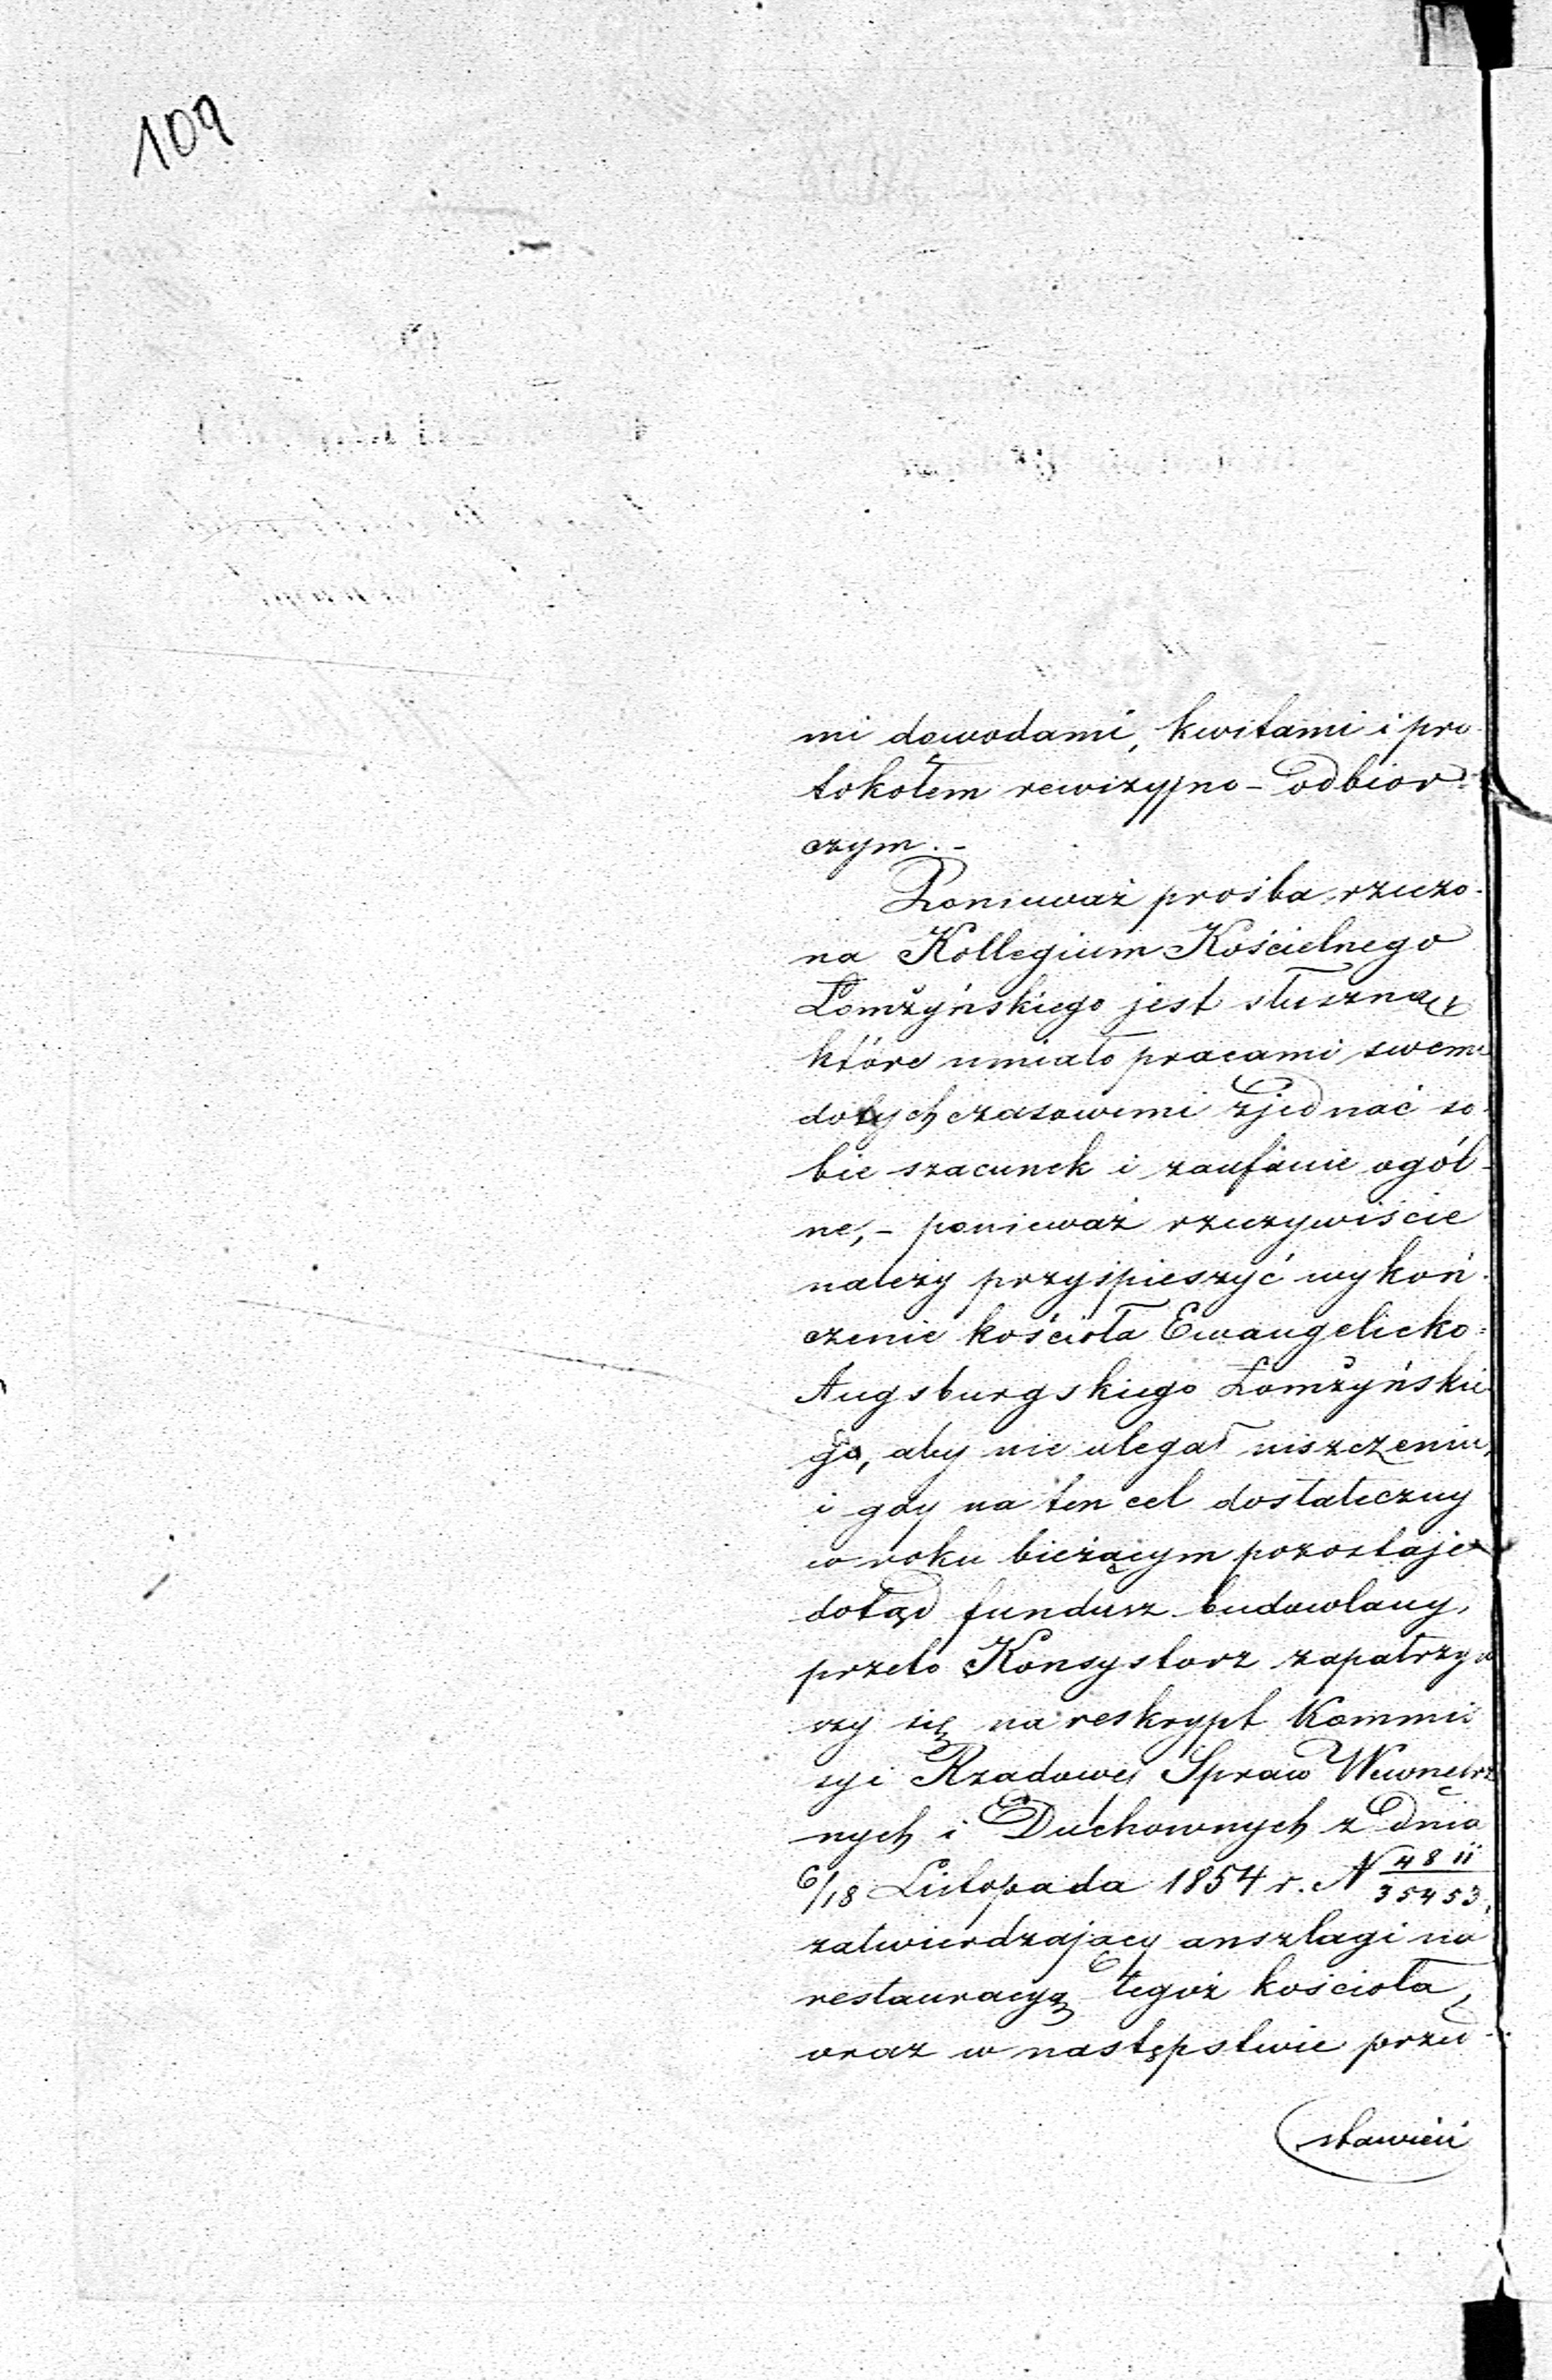 109
mi dowodami, kwitami i pro-
tokołem rewizyjno-odbior-
czym.-
Ponieważ prośba rzeczo-
na Kollegium Kościelnego
Łomżyńskiego jest słuszną,
które umiało pracami swemi
dotychczasowemi zjednać so-
bie szacunek i zaufanie ogól-
ne,- ponieważ rzeczywiście
należy przyśpieszyć wykoń-
czenie kościoła Ewangelicko-
Augsburgskiego Łomżyńskie
go, aby nie ulegał niszczeniu,
i gdy na ten cel dostateczny
w roku bieżącym pozostaje
dotąd fundusz budowlany,
przeto Konsystorz zapatrzyw
szy się na reskrypt Kommis
syi Rządowej Spraw Wewnętrz
nych i Duchownych z dnia
6/18 Listopada 1854 r. N 4811/35453,
zatwierdzający anszlagi na
restauracyą tegoż kościoła,
oraz w następstwie przed-
stawień